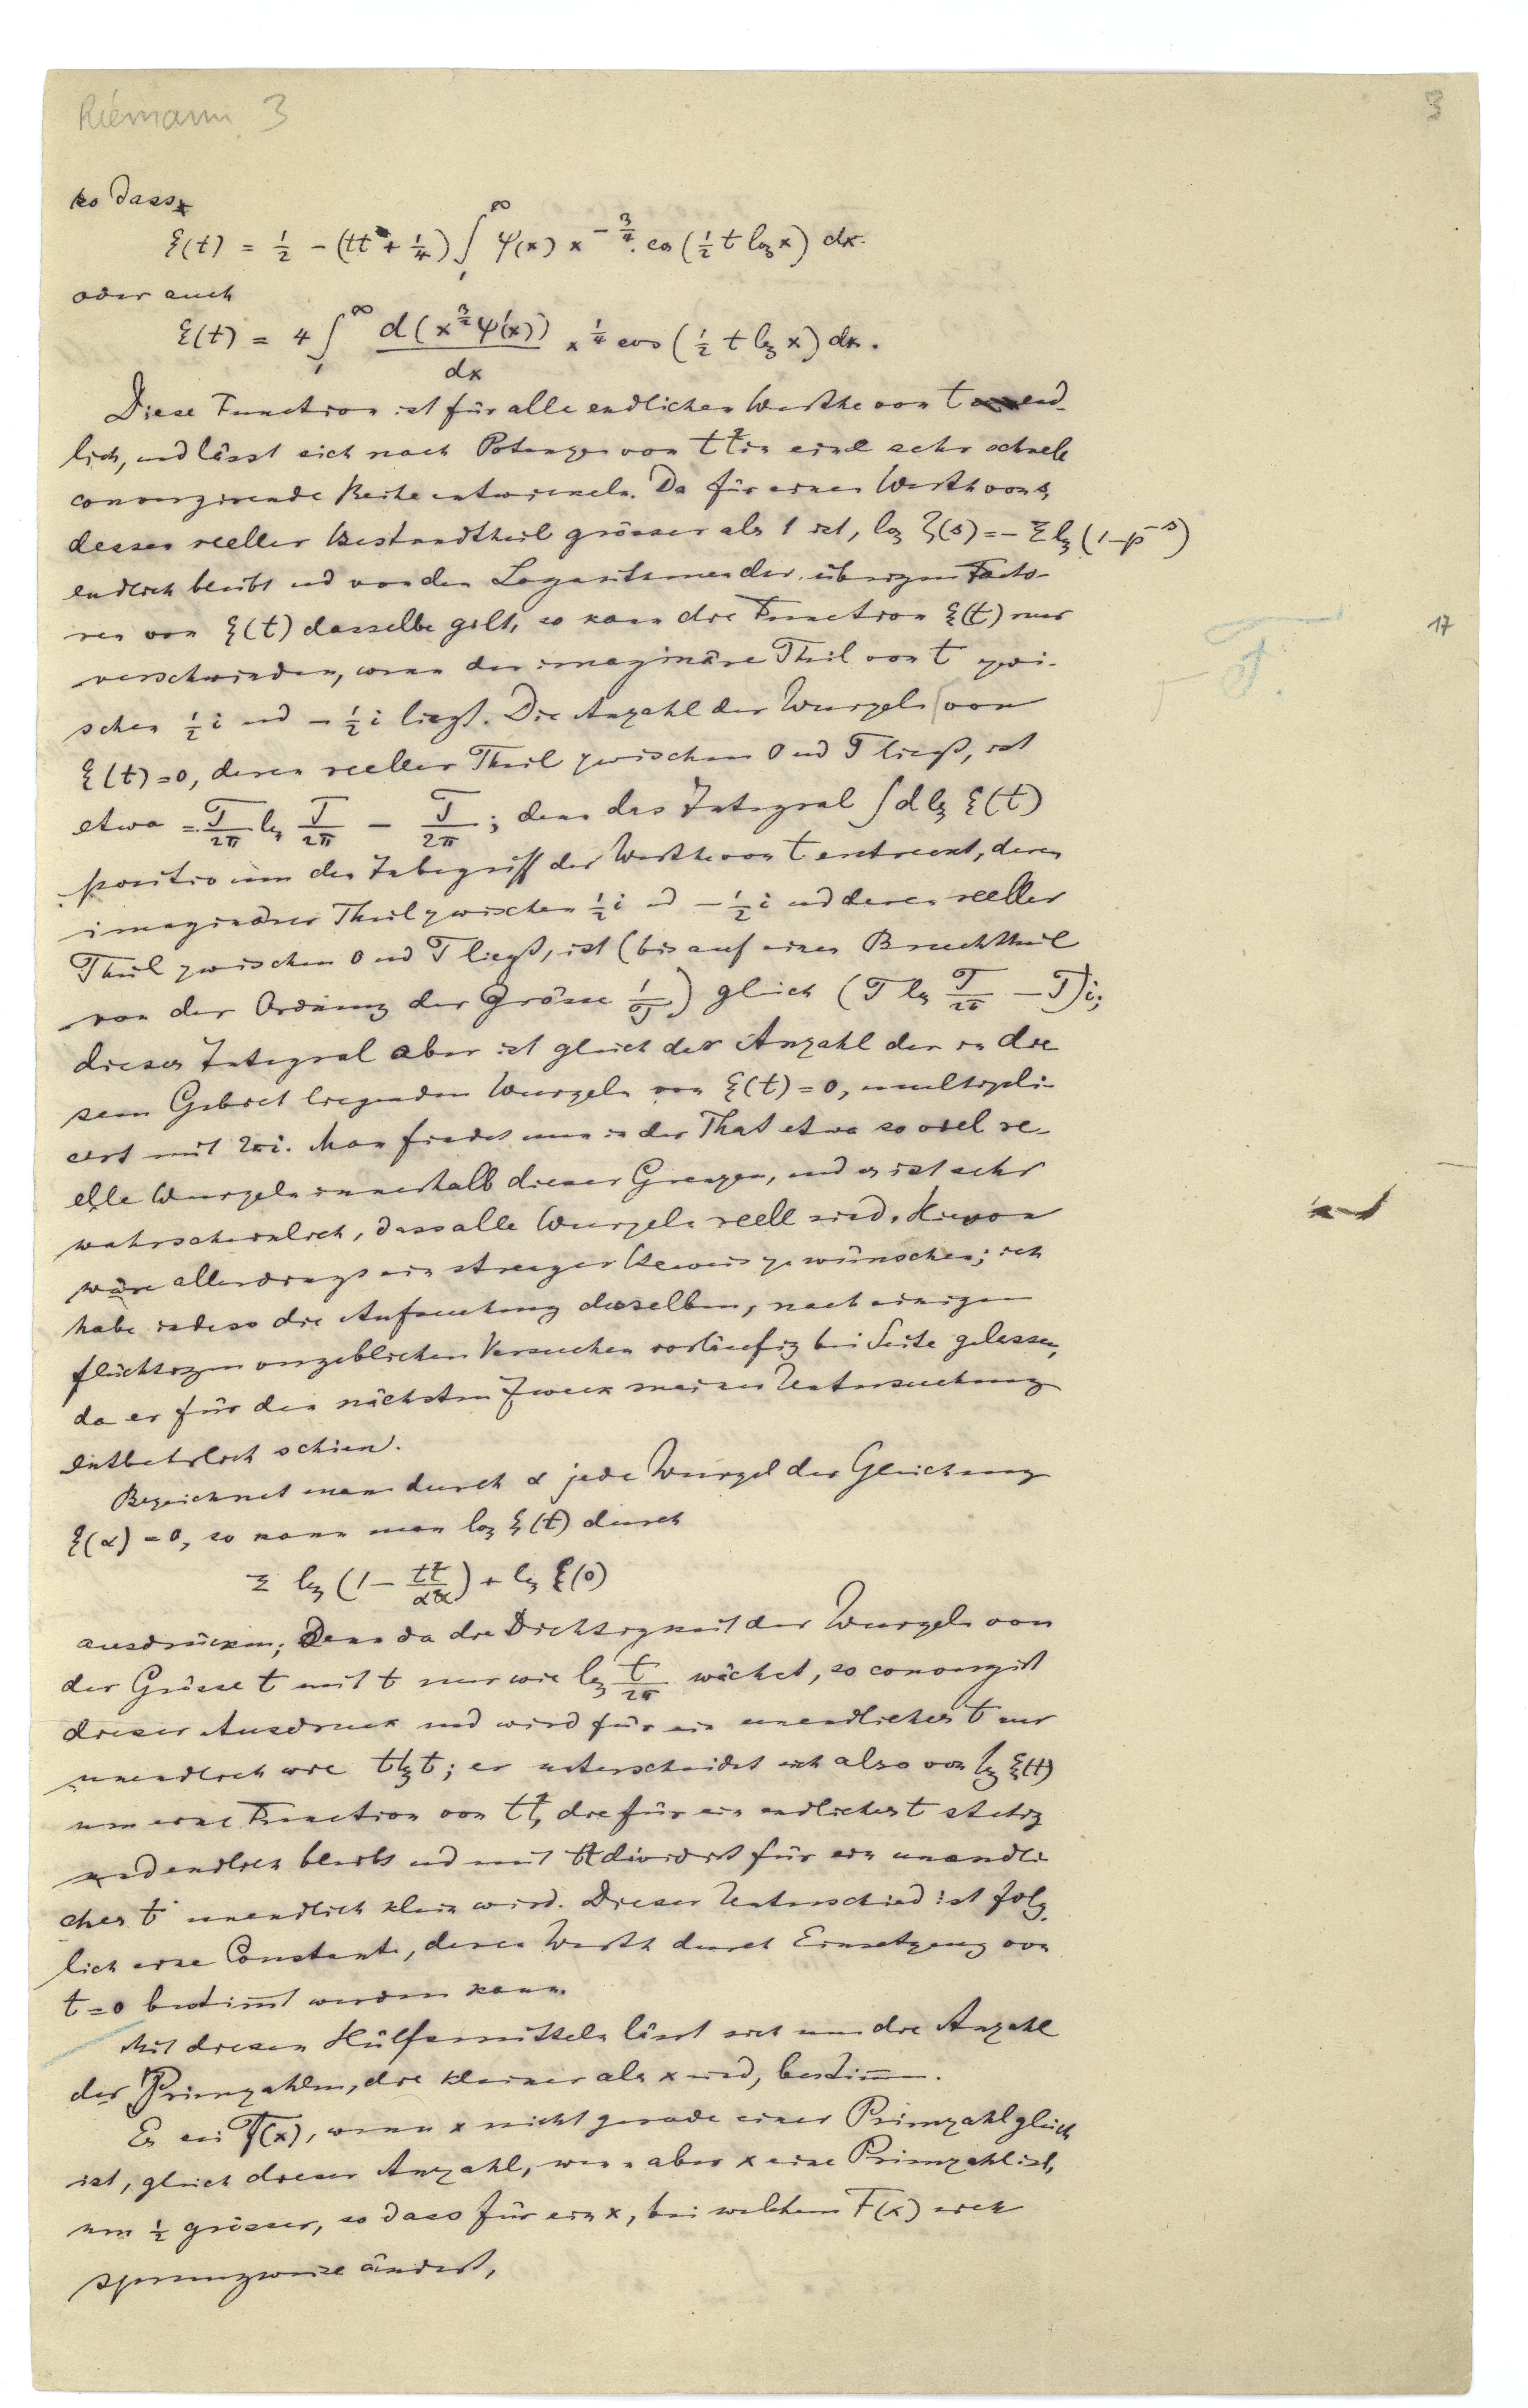 Riemann 3
3
so dass
ξ(t) = 1/2 − (tt + 1/4) ∫₁^∞ ψ(x) x^{−3/4} cos (1/2 t log x) dx.
oder auch
ξ(t) = 4 ∫₁^∞ d(x^{3/2} ψ'(x))/dx x^{1/4} cos (1/2 t log x) dx.
Diese Function ist für alle endlichen Werthe von t end-
lich, und lässt sich nach Potenzen von tt in eine sehr schnell
convergirende Reihe entwickeln. Da für einen Werth von s,
dessen reeller Bestandtheil grösser als 1 ist, log ζ(s) = − Σ log (1−p^{−s})
endlich bleibt und von den Logarithmen der übrigen Facto-
ren von ξ(t) dasselbe gilt, so kann die Function ξ(t) nur
17
verschwinden, wenn der imaginäre Theil von t zwi-
T.
schen 1/2 i und − 1/2 i liegt. Die Anzahl der Wurzeln von
ξ(t)=0, deren reeller Theil zwischen 0 und T liegt, ist
etwa = T/2π log T/2π − T/2π; denn das Integral ∫ d log ξ(t)
positiv um den Inbegriff der Werthe von t erstreckt, deren
imaginärer Theil zwischen 1/2 i und − 1/2 i und deren reeller
Theil zwischen 0 und T liegt, ist (bis auf einen Bruchtheil
von der Ordnung der Grösse 1/T) gleich (T log T/2π − T)i;
dieses Integral aber ist gleich der Anzahl der in die
sem Gebiet liegenden Wurzeln von ξ(t) = 0, multipli-
cirt mit 2πi. Man findet nun in der That etwa so viel re-
elle Wurzeln innerhalb dieser Grenzen, und es ist sehr
wahrscheinlich, dass alle Wurzeln reell sind. Hievon
wäre allerdings ein strenger Beweis zu wünschen; ich
habe indess die Aufsuchung desselben, nach einigen
flüchtigen vergeblichen Versuchen vorläufig bei Seite gelassen,
da er für den nächsten Zweck meiner Untersuchung
entbehrlich schien.
Bezeichnet man durch α jede Wurzel der Gleichung
ξ(α) = 0, so kann man log ξ(t) durch
Σ log (1 − tt/αα) + log ξ(0)
ausdrücken; Denn da die Dichtigkeit der Wurzeln von
der Grösse t mit t nur wie log t/2π wächst, so convergirt
dieser Ausdruck und wird für ein unendliches t nur
unendlich wie t log t; er unterscheidet sich also von log ξ(t)
um eine Function von tt, die für ein endliches t stetig
und endlich bleibt und mit tt dividirt für ein unendli
ches t unendlich klein wird. Dieser Unterschied ist folg
lich eine Constante, deren Werth durch Einsetzung von
t = 0 bestimmt werden kann.
Mit diesen Hülfsmitteln lässt sich nun die Anzahl
der Primzahlen, die kleiner als x sind, bestimmen.
Es sei F(x), wenn x nicht gerade einer Primzahl gleich
ist, gleich dieser Anzahl, wenn aber x eine Primzahl ist,
um 1/2 grösser, so dass für ein x, bei welchem F(x) sich
sprungweise ändert,